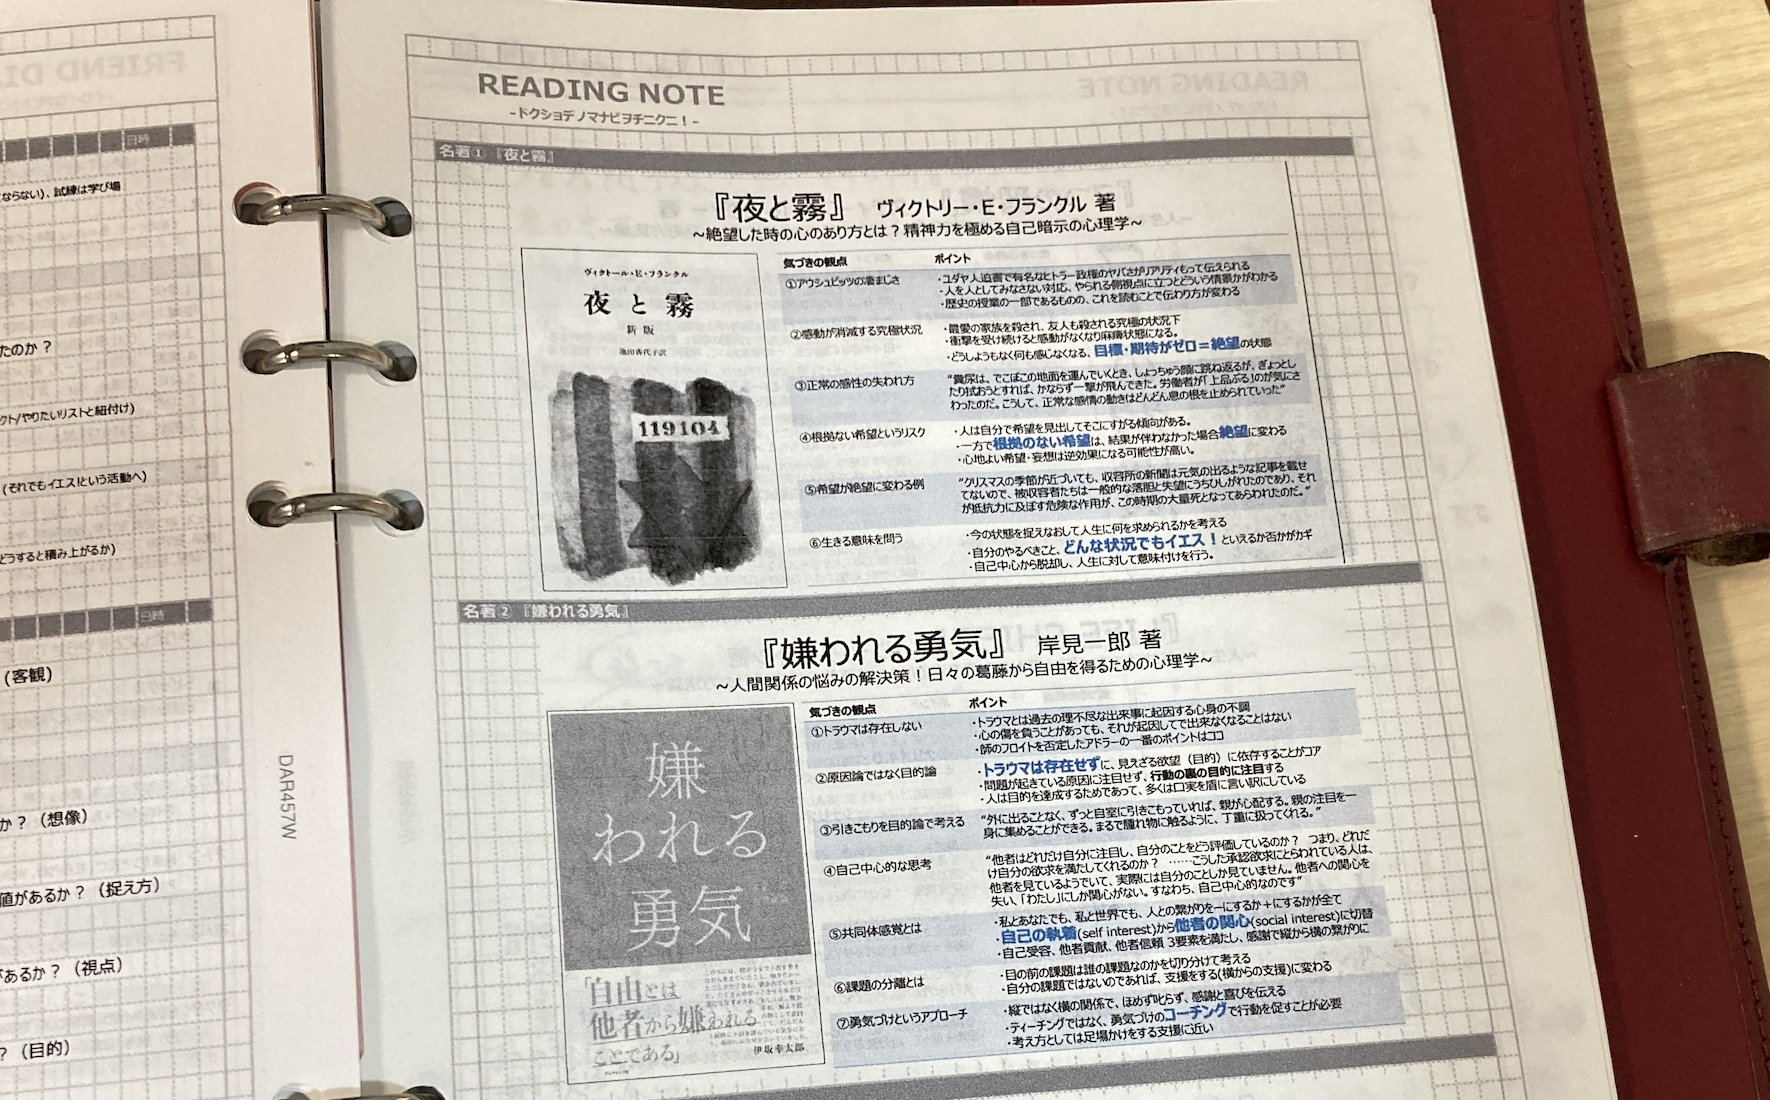 日時
ならない)、試練は学び場
たのか？
クト/やりたいリストと紐付け)
(それでもイエス!という活動へ)
どうすると積み上がるか)
日時
(客観)
か？（想像)
値があるか？（捉え方)
があるか？（視点)
？（目的)
DAR457W
READING NOTE
-ドクショデノマナビヲチニクニ！-
名著①『夜と霧』
『夜と霧』 ヴィクトリー・E・フランクル 著
~絶望した時の心のあり方とは？精神力を極める自己暗示の心理学~
ヴィクトール・E・フランクル
夜と霧
新版
池田香代子訳
119104
気づきの観点 ポイント
①アウシュビッツの凄まじさ
・ユダヤ人迫害で有名なヒトラー政権のヤバさがリアリティもって伝えられる
・人を人としてみなさない対応、やられる側視点に立つとどういう情景かがわかる
・歴史の授業の一部であるものの、これを読むことで伝わり方が変わる
②感動が消滅する究極状況
・最愛の家族を殺され、友人も殺される究極の状況下
・衝撃を受け続けると感動がなくなり麻痺状態になる。
・どうしようもなく何も感じなくなる、目標・期待がゼロ＝絶望の状態
③正常の感性の失われ方
“糞尿は、でこぼこの地面を運んでいくとき、しょっちゅう顔に跳ね返るが、ぎょっとし
たり拭おうとすれば、かならず一撃が飛んできた。労働者が「上品ぶる」のが気にさ
わったのだ。こうして、正常な感情の動きはどんどん息の根を止められていった”
④根拠ない希望というリスク
・人は自分で希望を見出してそこにすがる傾向がある。
・一方で根拠のない希望は、結果が伴わなかった場合絶望に変わる
・心地よい希望・妄想は逆効果になる可能性が高い。
⑤希望が絶望に変わる例
“クリスマスの季節が近づいても、収容所の新聞は元気の出るような記事を載せ
てないので、被収容者たちは一般的な落胆と失望にうちひしがれたのであり、それ
が抵抗力に及ぼす危険な作用が、この時期の大量死となってあらわれたのだ。”
⑥生きる意味を問う
・今の状態を捉えなおして人生に何を求められるかを考える
・自分のやるべきこと、どんな状況でもイエス！といえるか否かがカギ
・自己中心から脱却し、人生に対して意味付けを行う。
名著②『嫌われる勇気』
『嫌われる勇気』 岸見一郎 著
~人間関係の悩みの解決策！日々の葛藤から自由を得るための心理学~
嫌
われる
勇気
「自由とは
他者から嫌われる
ことである」
伊坂幸太郎
気づきの観点 ポイント
①トラウマは存在しない
・トラウマとは過去の理不尽な出来事に起因する心身の不調
・心の傷を負うことがあっても、それが起因してで出来なくなることはない
・師のフロイトを否定したアドラーの一番のポイントはココ
②原因論ではなく目的論
・トラウマは存在せずに、見えざる欲望（目的）に依存することがコア
・問題が起きている原因に注目せず、行動の裏の目的に注目する
・人は目的を達成するためであって、多くは口実を盾に言い訳にしている
③引きこもりを目的論で考える
“外に出ることなく、ずっと自室に引きこもっていれば、親が心配する。親の注目を一
身に集めることができる。まるで腫れ物に触るように、丁重に扱ってくれる。”
④自己中心的な思考
“他者はどれだけ自分に注目し、自分のことをどう評価しているのか？ つまり、どれだ
け自分の欲求を満たしてくれるのか？ ……こうした承認欲求にとらわれている人は、
他者を見ているようでいて、実際には自分のことしか見ていません。他者への関心を
失い、「わたし」にしか関心がない。すなわち、自己中心的なのです”
⑤共同体感覚とは
・私とあなたでも、私と世界でも、人との繋がりを−にするか＋にするかが全て
・自己の執着(self interest)から他者の関心(social interest)に切替
・自己受容、他者貢献、他者信頼 3要素を満たし、感謝で縦から横の繋がりに
⑥課題の分離とは
・目の前の課題は誰の課題なのかを切り分けて考える
・自分の課題ではないのであれば、支援をする(横からの支援)に変わる
⑦勇気づけというアプローチ
・縦ではなく横の関係で、ほめず叱らず、感謝と喜びを伝える
・ティーチングではなく、勇気づけのコーチングで行動を促すことが必要
・考え方としては足場かけをする支援に近い